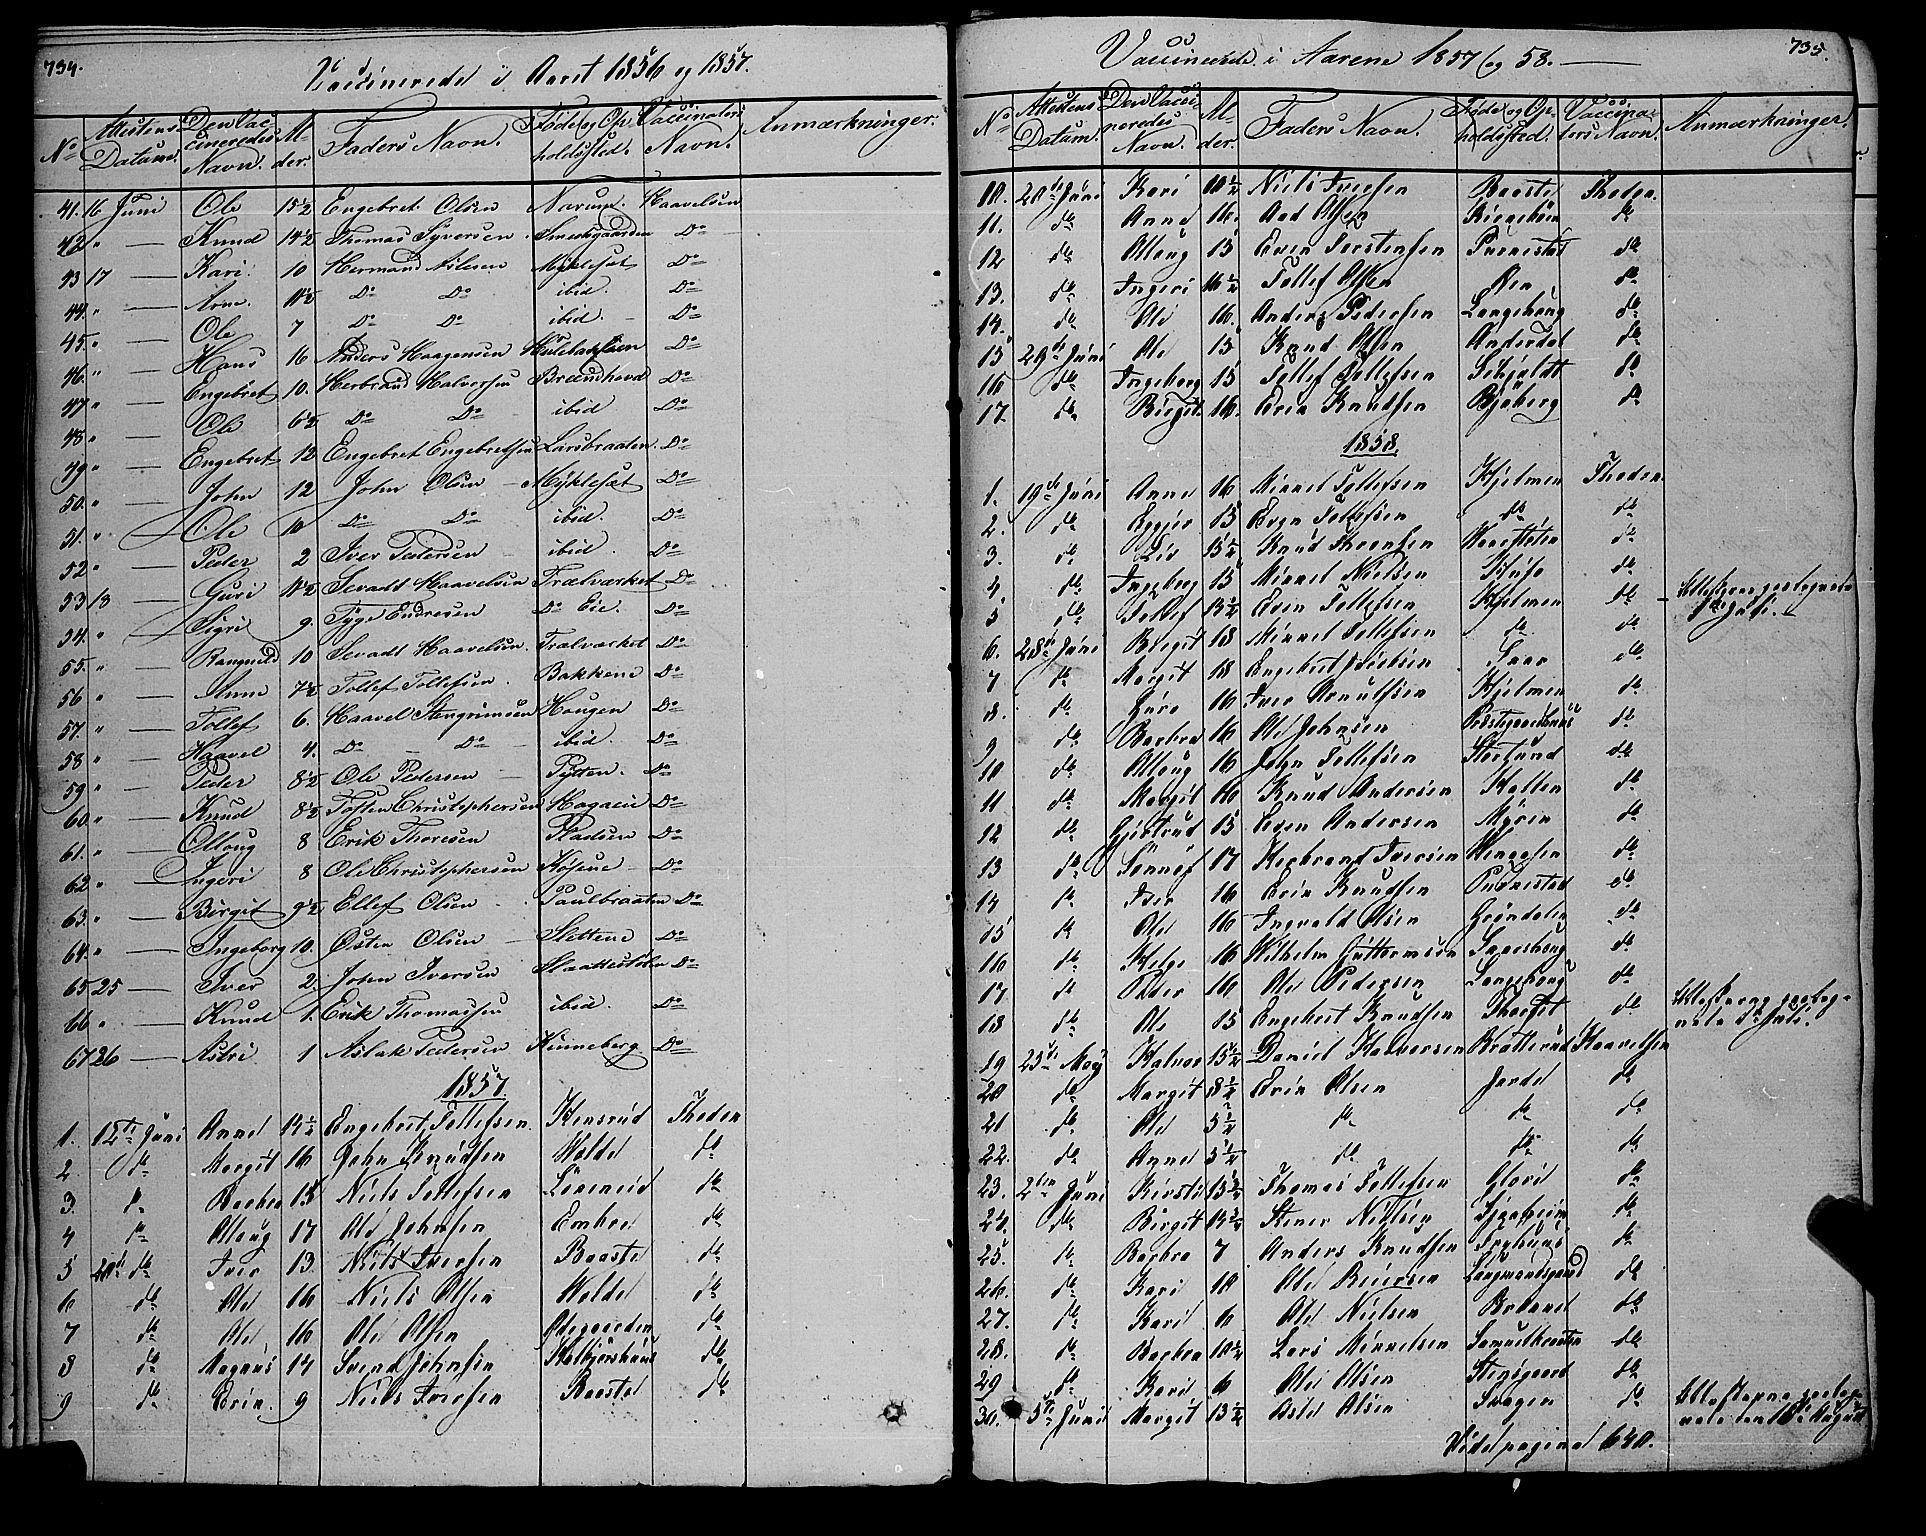 734.
Vaccinerede i Aaret 1856 og 1857.
No Attestens Datum. Den Vaccineredes Navn. Alder. Faders Navn. Føde og Opholdssted. Vaccinateurs Navn. Anmærkninger.
41. 16 Juni Ole 15½ Engebret Olsen Narum Haavelsen
42 " — Knud 14½ Thomas Syversen Smedsgaarden Do
43 17 — Kari 10 Hermand Nilesen Myklesat Do
44. " — Arne. 11½ Do Do ibid. Do
45. " — Ole 7 Do Do ibid. Do
46. " — Hans 16 Anders Haagensen Do
47 " — Engebret 10. Herbrand Halversen Bræmhovd Do
48 " — Ole 6½ Do Do ibid Do
49 " — Engebret 12 Engebret Engebretsen Larsbraaten. Do
50. " — John 12 John Olsen Myklesat Do
51. " — Ole 10 Do Do ibid. Do
52 " — Peder 2 Iver Pedersen ibid. Do
53 18 — Guri 11½ Sevadt Haavelsen Trælværket Do
54. " — Sigri 9. Tyge Endresen Do Eie. Do
55. " — Rangnild 10 Sevadt Haavelsen. Trælværket Do
56 " — Anne 7½ Tollef Tollefsen. Bakkene Do
57. " — Tollef 6. Haavel Stengrimsen Haugen Do
58 " — Haavel 4. Do Do ibid. Do
59 " — Peder 8½ Ole Pedersen Pytten. Do
60 " — Knud 8½ Tosten Christophersen Hagaeie Do
61. " — Ollaug 8 Erik Thoresen Pladsen Do
62 " — Ingeri 8 Ole Christophersen Do
63. " — Birgit 9½ Ellef Olsen Paulbraaten Do
64. " — Ingeborg 10. Østen Olsen Slettene Do
65 25 — Iver 2. John Iversen Slaattestølen Do
66 " — Knud 1. Erik Thomassen ibid. Do
67 26 — Astri 1 Aslak Pedersen Kinneberg Do
1857.
1. 12te Juni Anne 14½ Engebret Tollefsen. Kensrud Theden
2 do Margit 16 John Knudsen Wolde do
3. do Barbra 13 Niels Tollefsen do
4 do Ollaug 17 Ole Johnsen Embre do
5 20de do Iver 13 Niels Iversen Baaste do
6 do Ole 16 Niels Olsen Wolde do
7 do Ole 16 Ole Olsen Ødegaarden do
8 do Magnus 14 Svend Johnsen do
9 do Erik. 9 Niels Iversen Baaste do
735.
Vaccinerede i Aarene 1857 og 58.
No Attestens Datum. Den Vaccineredes Navn. Alder. Faders Navn. Føde og Opholdssted. Vaccinateurs Navn. Anmærkninger.
10. 20de Juni Kari 10½ Niels Iversen Baaste Theden.
11. do Anne 16. Aad Olsen do
12 do Ollaug 15 Even Torstensen do
13. do Ingeri 16½ Tollef Olsen Ren do
14. do Ole 16. Anders Pedersen Langehaug do
15 29de Juni Ole 15 Knud Olsen Anderdal do
16 do Ingeborg 15 Tollef Tollefsen do
17 do Birgit 16. Erik Knudsen Bjøberg do
1858.
1. 19de Juni Anne 16 Mikkel Tollefsen Hjelmen Theden
2. do 15 Even Tollefsen do do
3. do Liv 15½ Knud do
4 do Ingeborg 15 Mikkel Nielsen do
5 do Tollef 14½ Even Tollefsen Hjelmen do
6. 28de Juni Birgit 18 Mikkel Tollefsen do do
7 do Margit 18 Engebret do
8. do Guro 16 Iver Hjelmen do
9 do Barbra 16 Ole Johnsen do
10 do Ollaug 16 John Tollefsen Storlund do
11 do Margit 16 Knud Andersen do
12 do Gjertrud 15 Even Andersen Myren do
13 do Sønnøf 17 Herbrand Iversen do
14 do Iver 16 Erik Knudsen do
15 do Ole 16 Ingvald Olsen Grøndalen do
16 do Helge 16 Wilhelm Guttormsen do
17 do Peder 16 Ole Pedersen Langehaug do
18 do Ole 15 Engebret Knudsen do
19 25de May Halvor 15½ Daniel Halvorsen Bratterud Haavelsen
20 do Margit 8½ Erik Olsen Jordel do
21 do Ole 5½ do do do
22. do Anne 3½ do do do
23. 2den Juni Kirsti 13½ Thomas Tollefsen do
24. do Birgit 14½ Stener do
25. do Barbra 7 Anders Knudsen do
26. do Kari 10 Ole do
27. do Kari 6 Ole Nielsen do
28. do Barbra 10½ Lars Mikkelsen do
29 do Kari 6 Ole Olsen Stensgaard do
30. 5te Juni Margit 13½ Olsen do
Vide pagina 640.